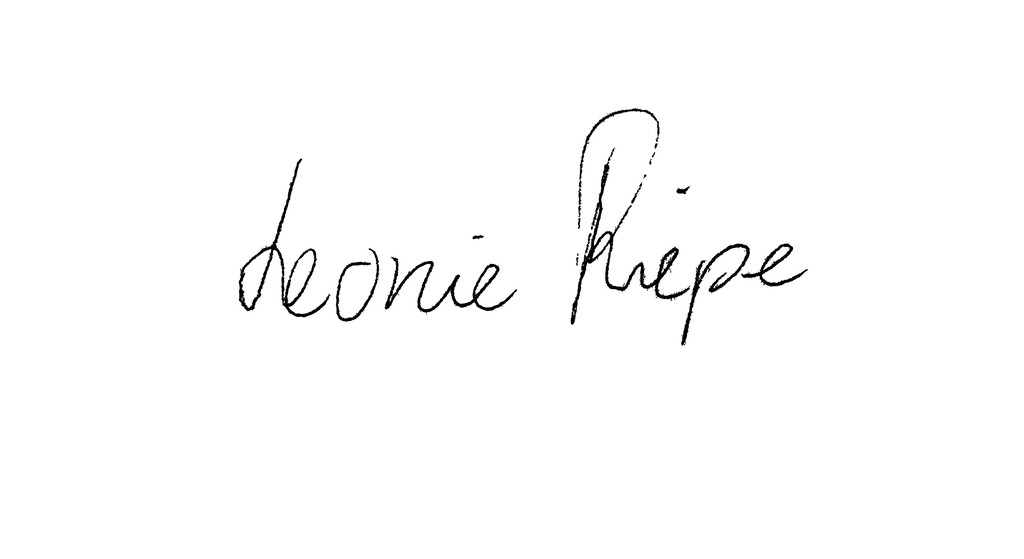 Leonie Riepe